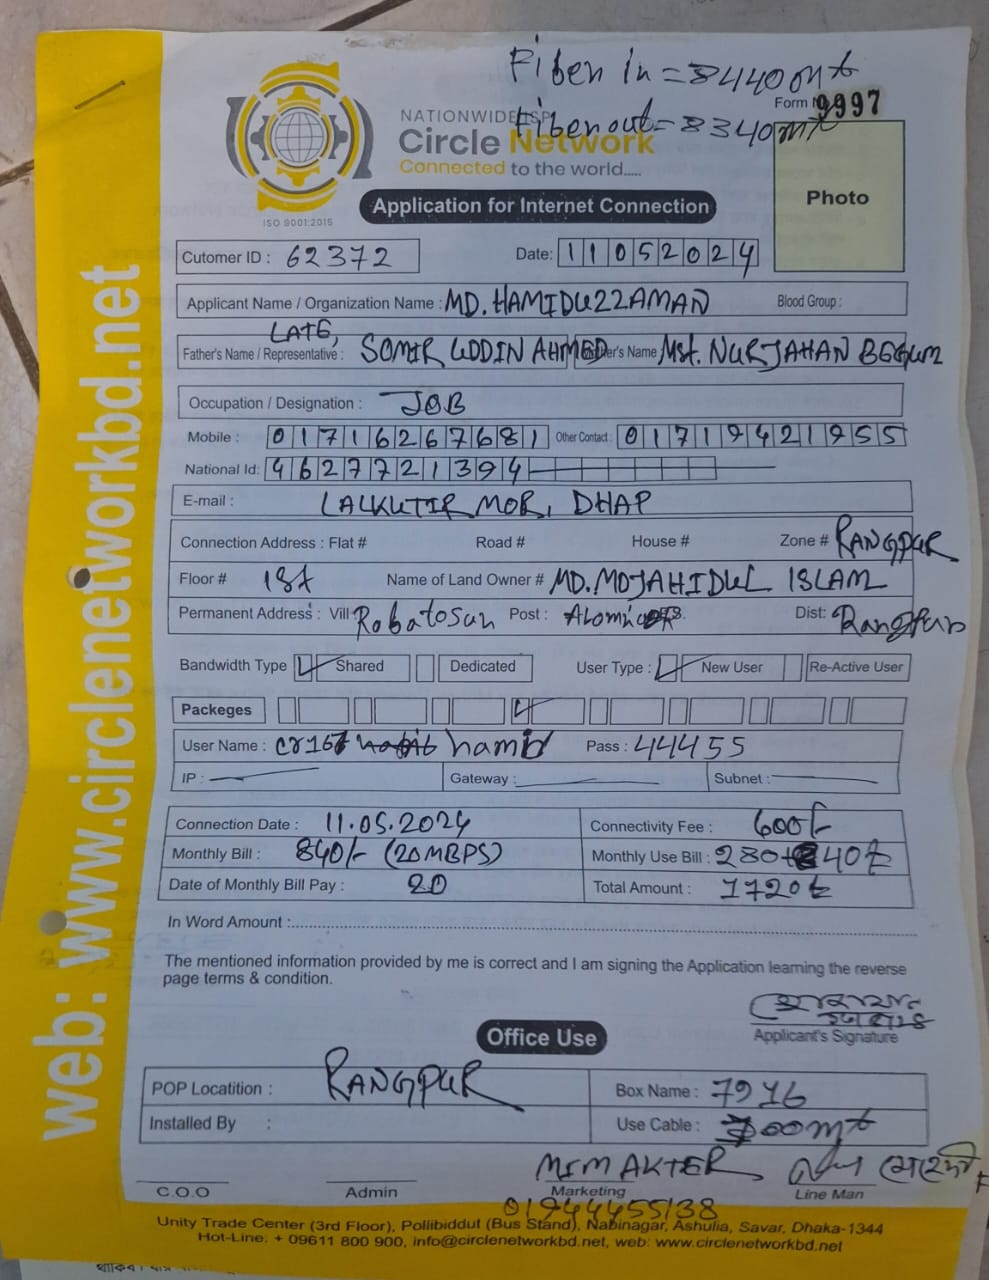 Fiber in = 34400mt
Form No 9997
NATIONWIDE ISP
Fiber out = 38340mt
Circle Network
Connected to the world.....
ISO 9001:2015
Photo
Application for Internet Connection
Cutomer ID : 62372 Date: 11052024
Applicant Name / Organization Name : MD. HAMIDUZZAMAN Blood Group :
LATE,
Father's Name / Representative : SOMIR UDDIN AHMED Mother's Name Mst. NURJAHAN BEGUM
Occupation / Designation : JOB
Mobile : 01716267681 Other Contact : 01719421955
National Id: 4627721394
E-mail : LALKUTIR MOR, DHAP
Connection Address : Flat # Road # House # Zone # RANGPUR
Floor # 1st Name of Land Owner # MD. MOJAHIDUL ISLAM
Permanent Address : Vill Robatosun Post : Dist: Rangpur
Bandwidth Type Shared Dedicated User Type : New User Re-Active User
Packeges
User Name : cr167 hamid Pass : 44455
IP : Gateway : Subnet :
Connection Date : 11.05.2024 Connectivity Fee : 600/-
Monthly Bill : 840/- (20MBPS) Monthly Use Bill : 280+840t
Date of Monthly Bill Pay : 20 Total Amount : 1720t
In Word Amount :
The mentioned information provided by me is correct and I am signing the Application learning the reverse
page terms & condition.
Applicant's Signature
Office Use
POP Locatition : RANGPUR Box Name : 7916
Installed By : Use Cable : 100mt
MIM AKTER
C.O.O Admin Marketing Line Man
01944455138
Unity Trade Center (3rd Floor), Pollibiddut (Bus Stand), Nabinagar, Ashulia, Savar, Dhaka-1344
Hot-Line: + 09611 800 900, info@circlenetworkbd.net, web: www.circlenetworkbd.net
web: www.circlenetworkbd.net